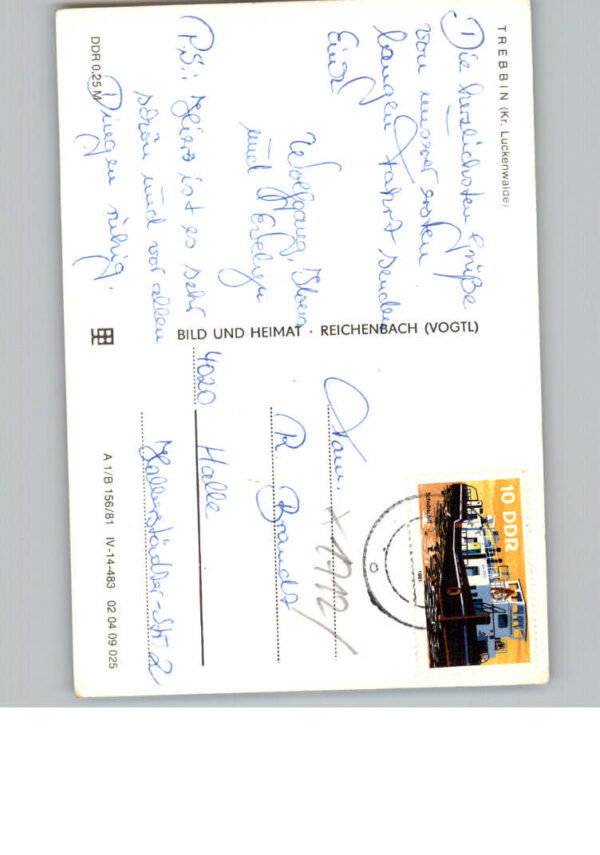 TREBBIN (Kr. Luckenwalde)
Die herzlichsten Grüße
von unserer ersten
langen Fahrt senden
Euch
Wolfgang,
und Evelyn
P.S.: Hier ist es sehr
schön und vor allen
Dingen ruhig.
DDR 0,25 M
BILD UND HEIMAT · REICHENBACH (VOGTL)
10 DDR
1981
Fam.
R. Brandt
4020 Halle
Halberstädter-Str. 2
A 1/B 156/81 IV-14-483 02 04 09 025